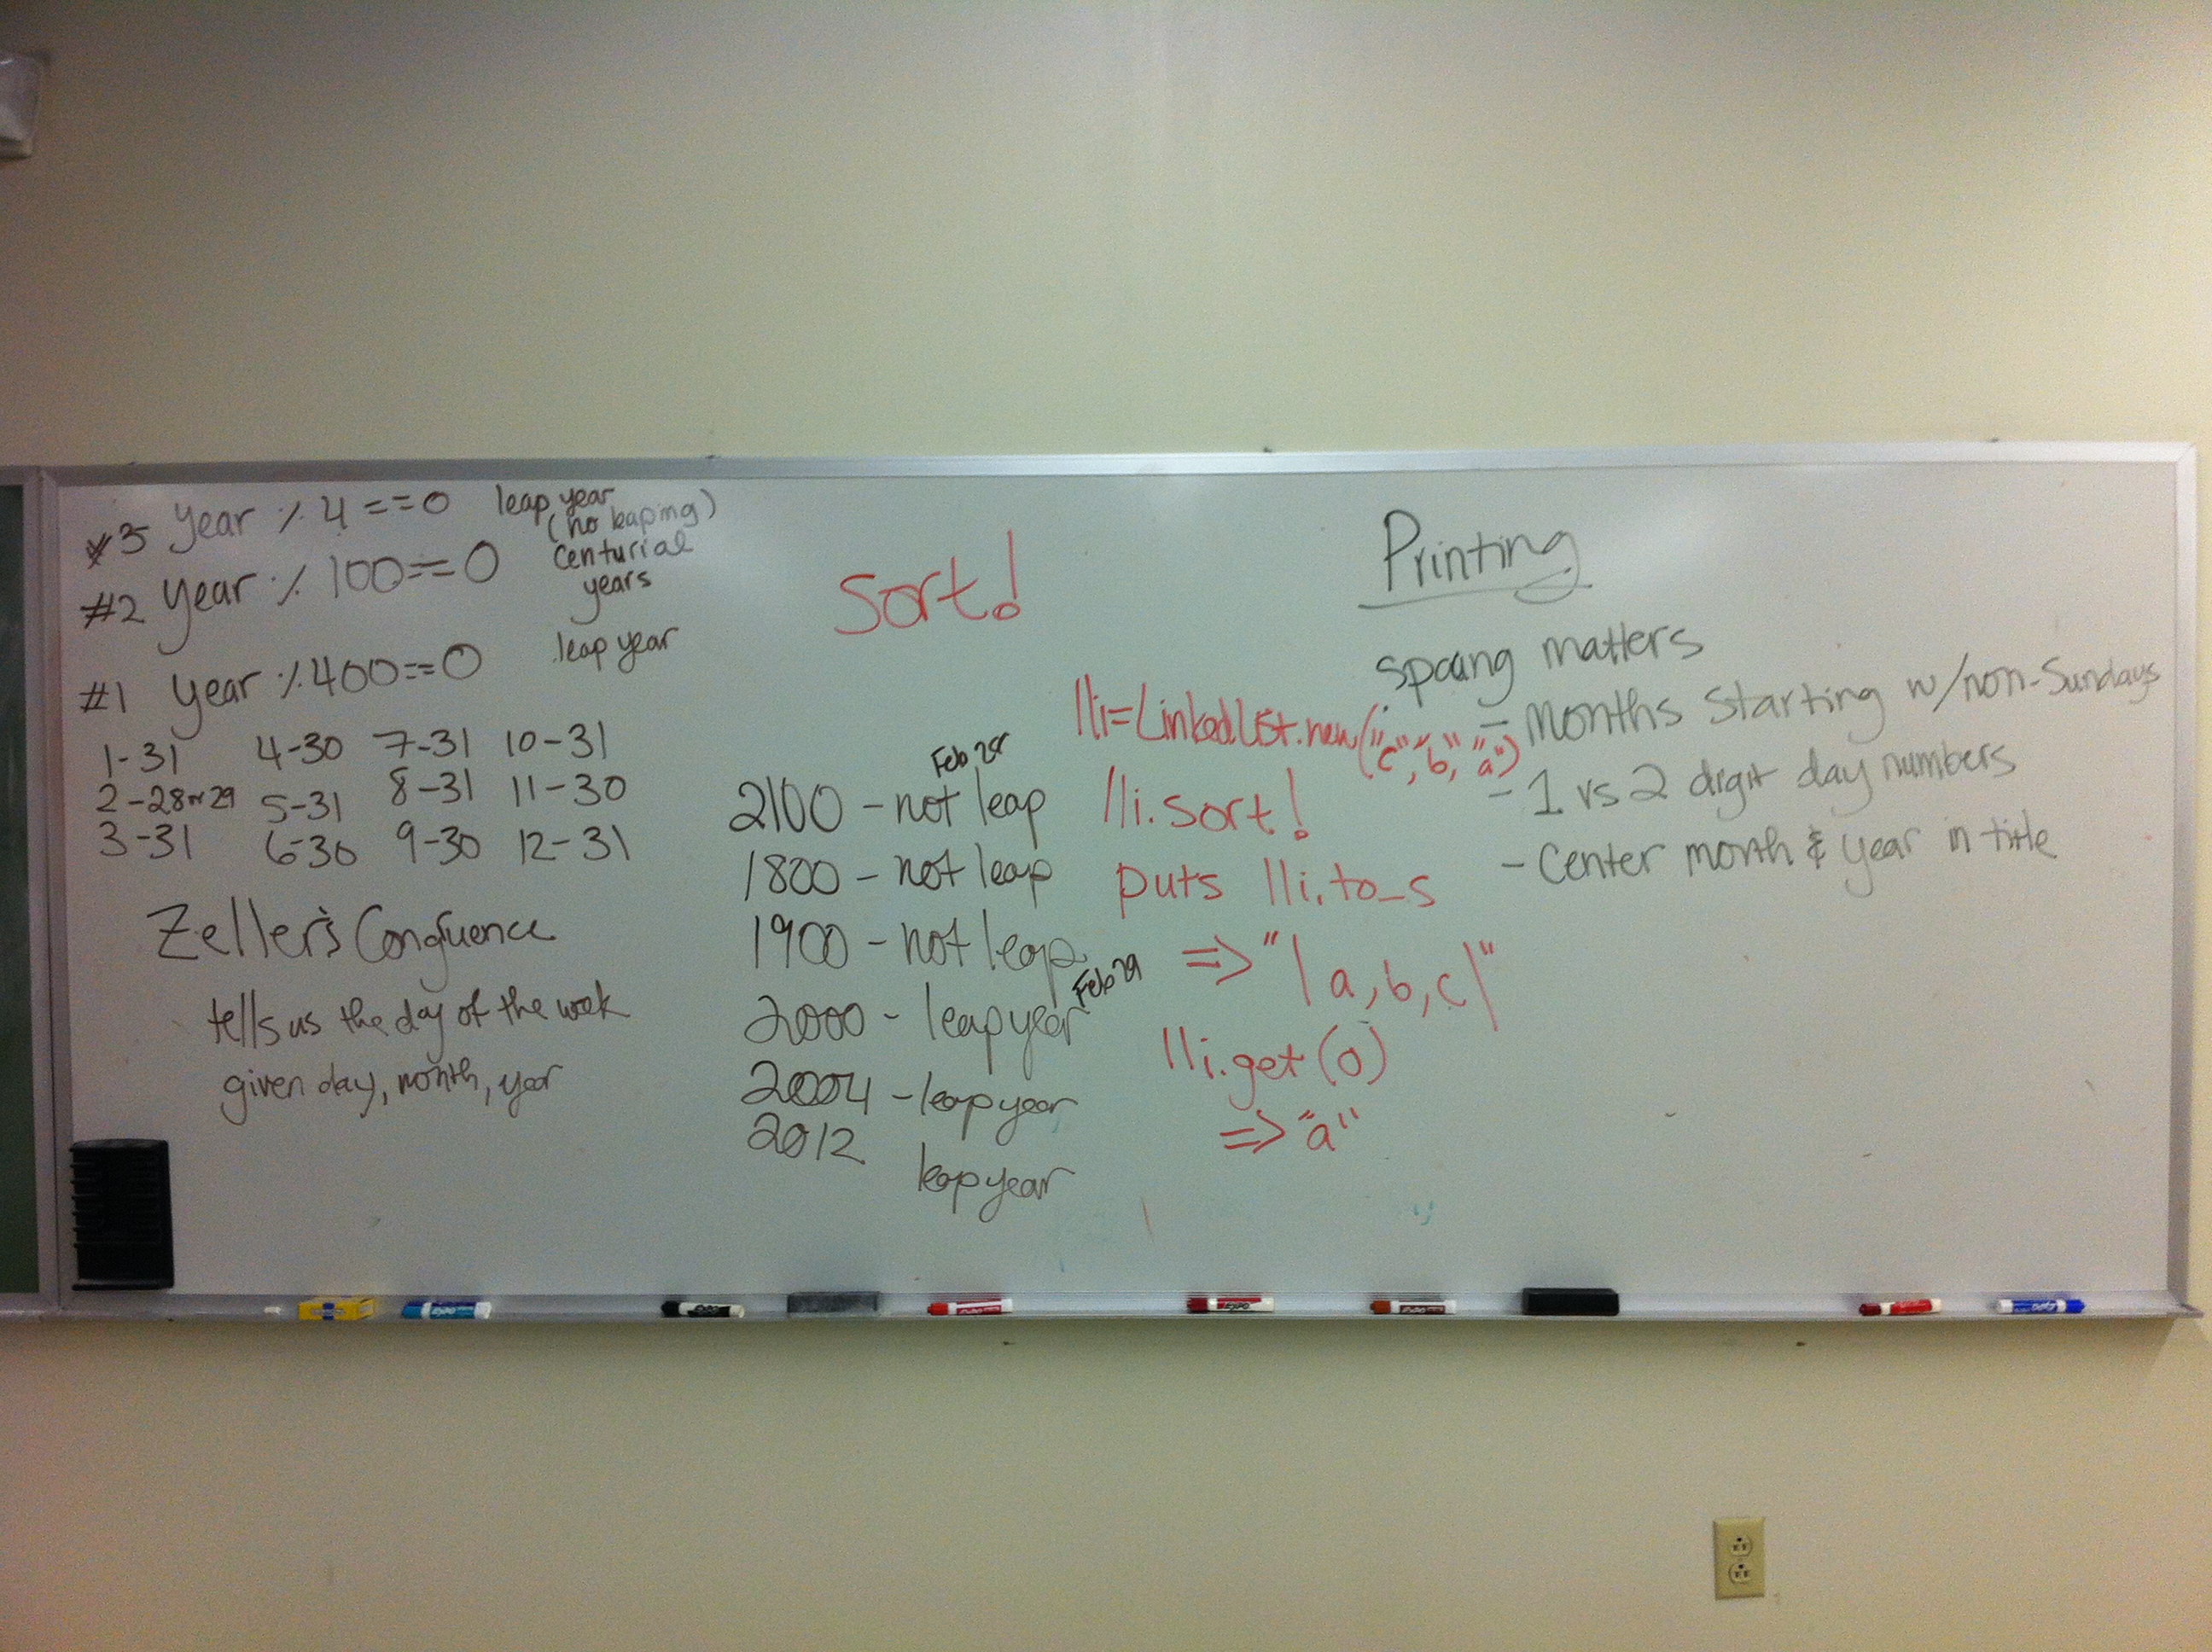 #3 Year % 4 == 0 leap year
#2 Year % 100 == 0 (no leaping) Centurial years
#1 Year % 400 == 0 leap year
1-31 4-30 7-31 10-31
2-28 or 29 5-31 8-31 11-30
3-31 6-30 9-30 12-31
Zeller's Congruence
tells us the day of the week
given day, month, year
Feb 28
2100 - not leap
1800 - not leap
1900 - not leap
Feb 29
2000 - leap year
2004 - leap year
2012
leap year
Sort!
lli=LinkedList.new("c","b","a")
lli.sort!
puts lli.to_s
=> "|a,b,c|"
lli.get(0)
=> "a"
Printing
spacing matters
- Months starting w/non-Sundays
- 1 vs 2 digit day numbers
- Center month & year in title
EXPO
EXPO
EXPO
EXPO
EXPO